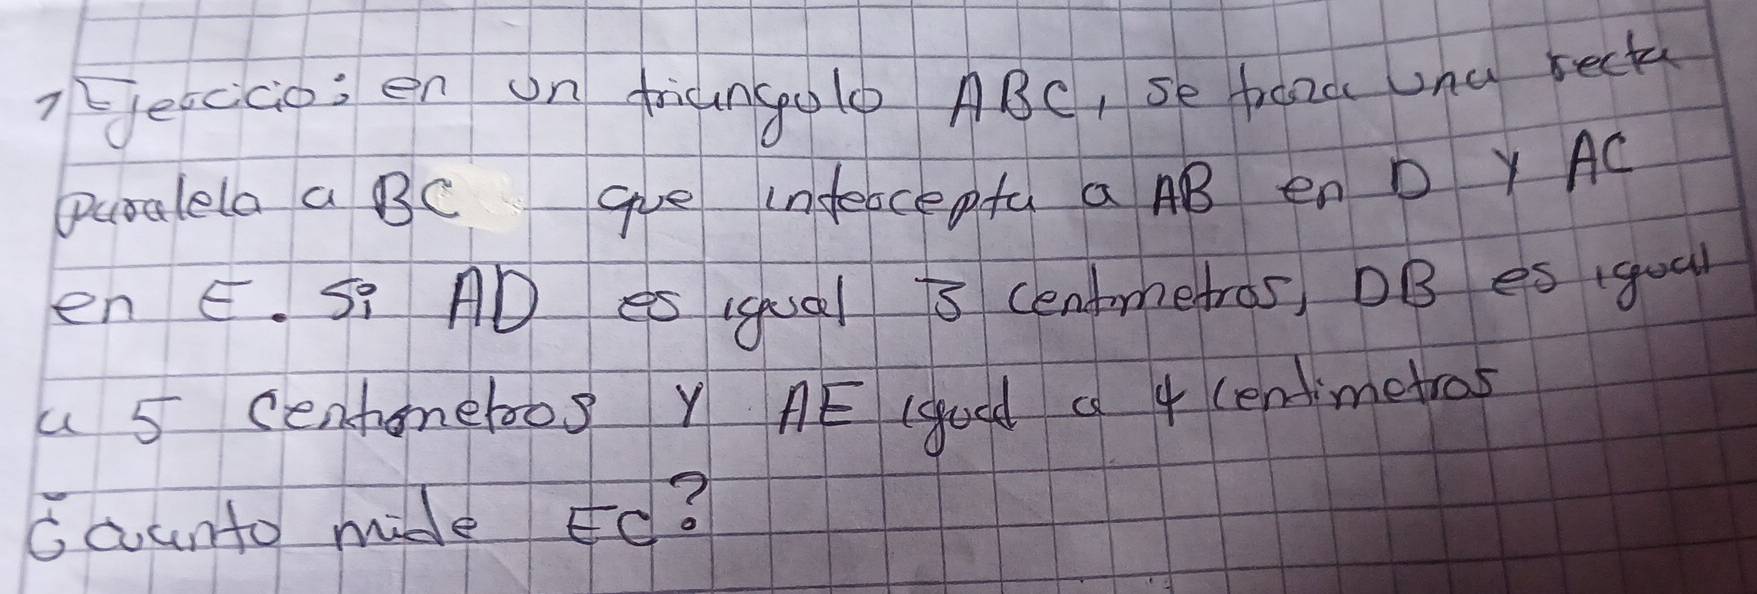 1 Ejercicio: en un triangulo ABC, se traza una recta
paralela a BC que intercepta a AB en D y AC
en E. Si AD es igual 3 centimetros, DB es igual
a 5 centimetros y AE igual a 4 centimetros
¿Cuanto mide EC?